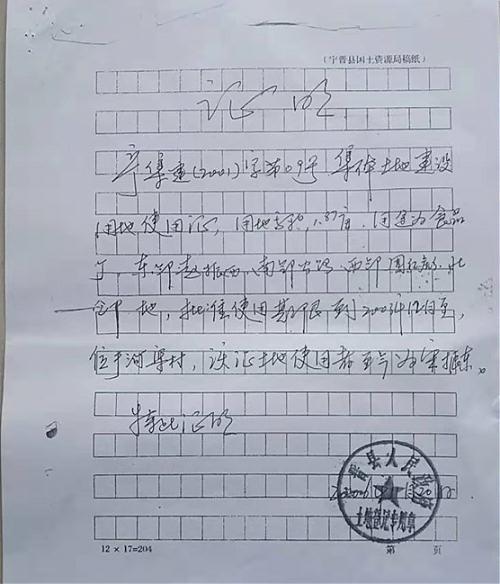 (宁晋县国土资源局稿纸)
证明
宁集建(2001)字第09号 集体土地建设
用地使用证, 用地 1.87亩. 用途为食品
, 东邻赵振西, 南邻公路, 西邻周 北
邻 地, 批准使用期限到2003年12月至,
位于河渠村, 该证土地使用者 为宋振东。
特此证明
晋县人民政府
土地登记专用章
12 × 17=204
第 页